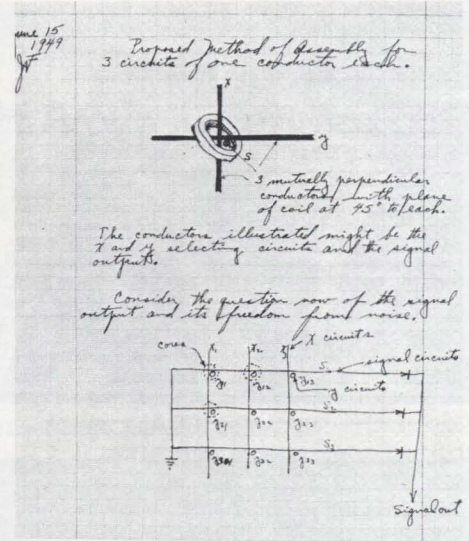 June 15
1949
JWF
Proposed Method of Assembly for
3 circuits of one conductor each.
x
y
S
3 mutually perpendicular
conductors, with plane
of coil at 45° to each.
The conductors illustrated might be the
x and y selecting circuits and the signal
outputs.
Consider the question now of the signal
output and its freedom from noise.
cores
x1
x2
x3
X circuits
S1
signal circuits
y11
y12
y13
y circuits
S2
y21
y22
y23
S3
y32
y33
Signal out